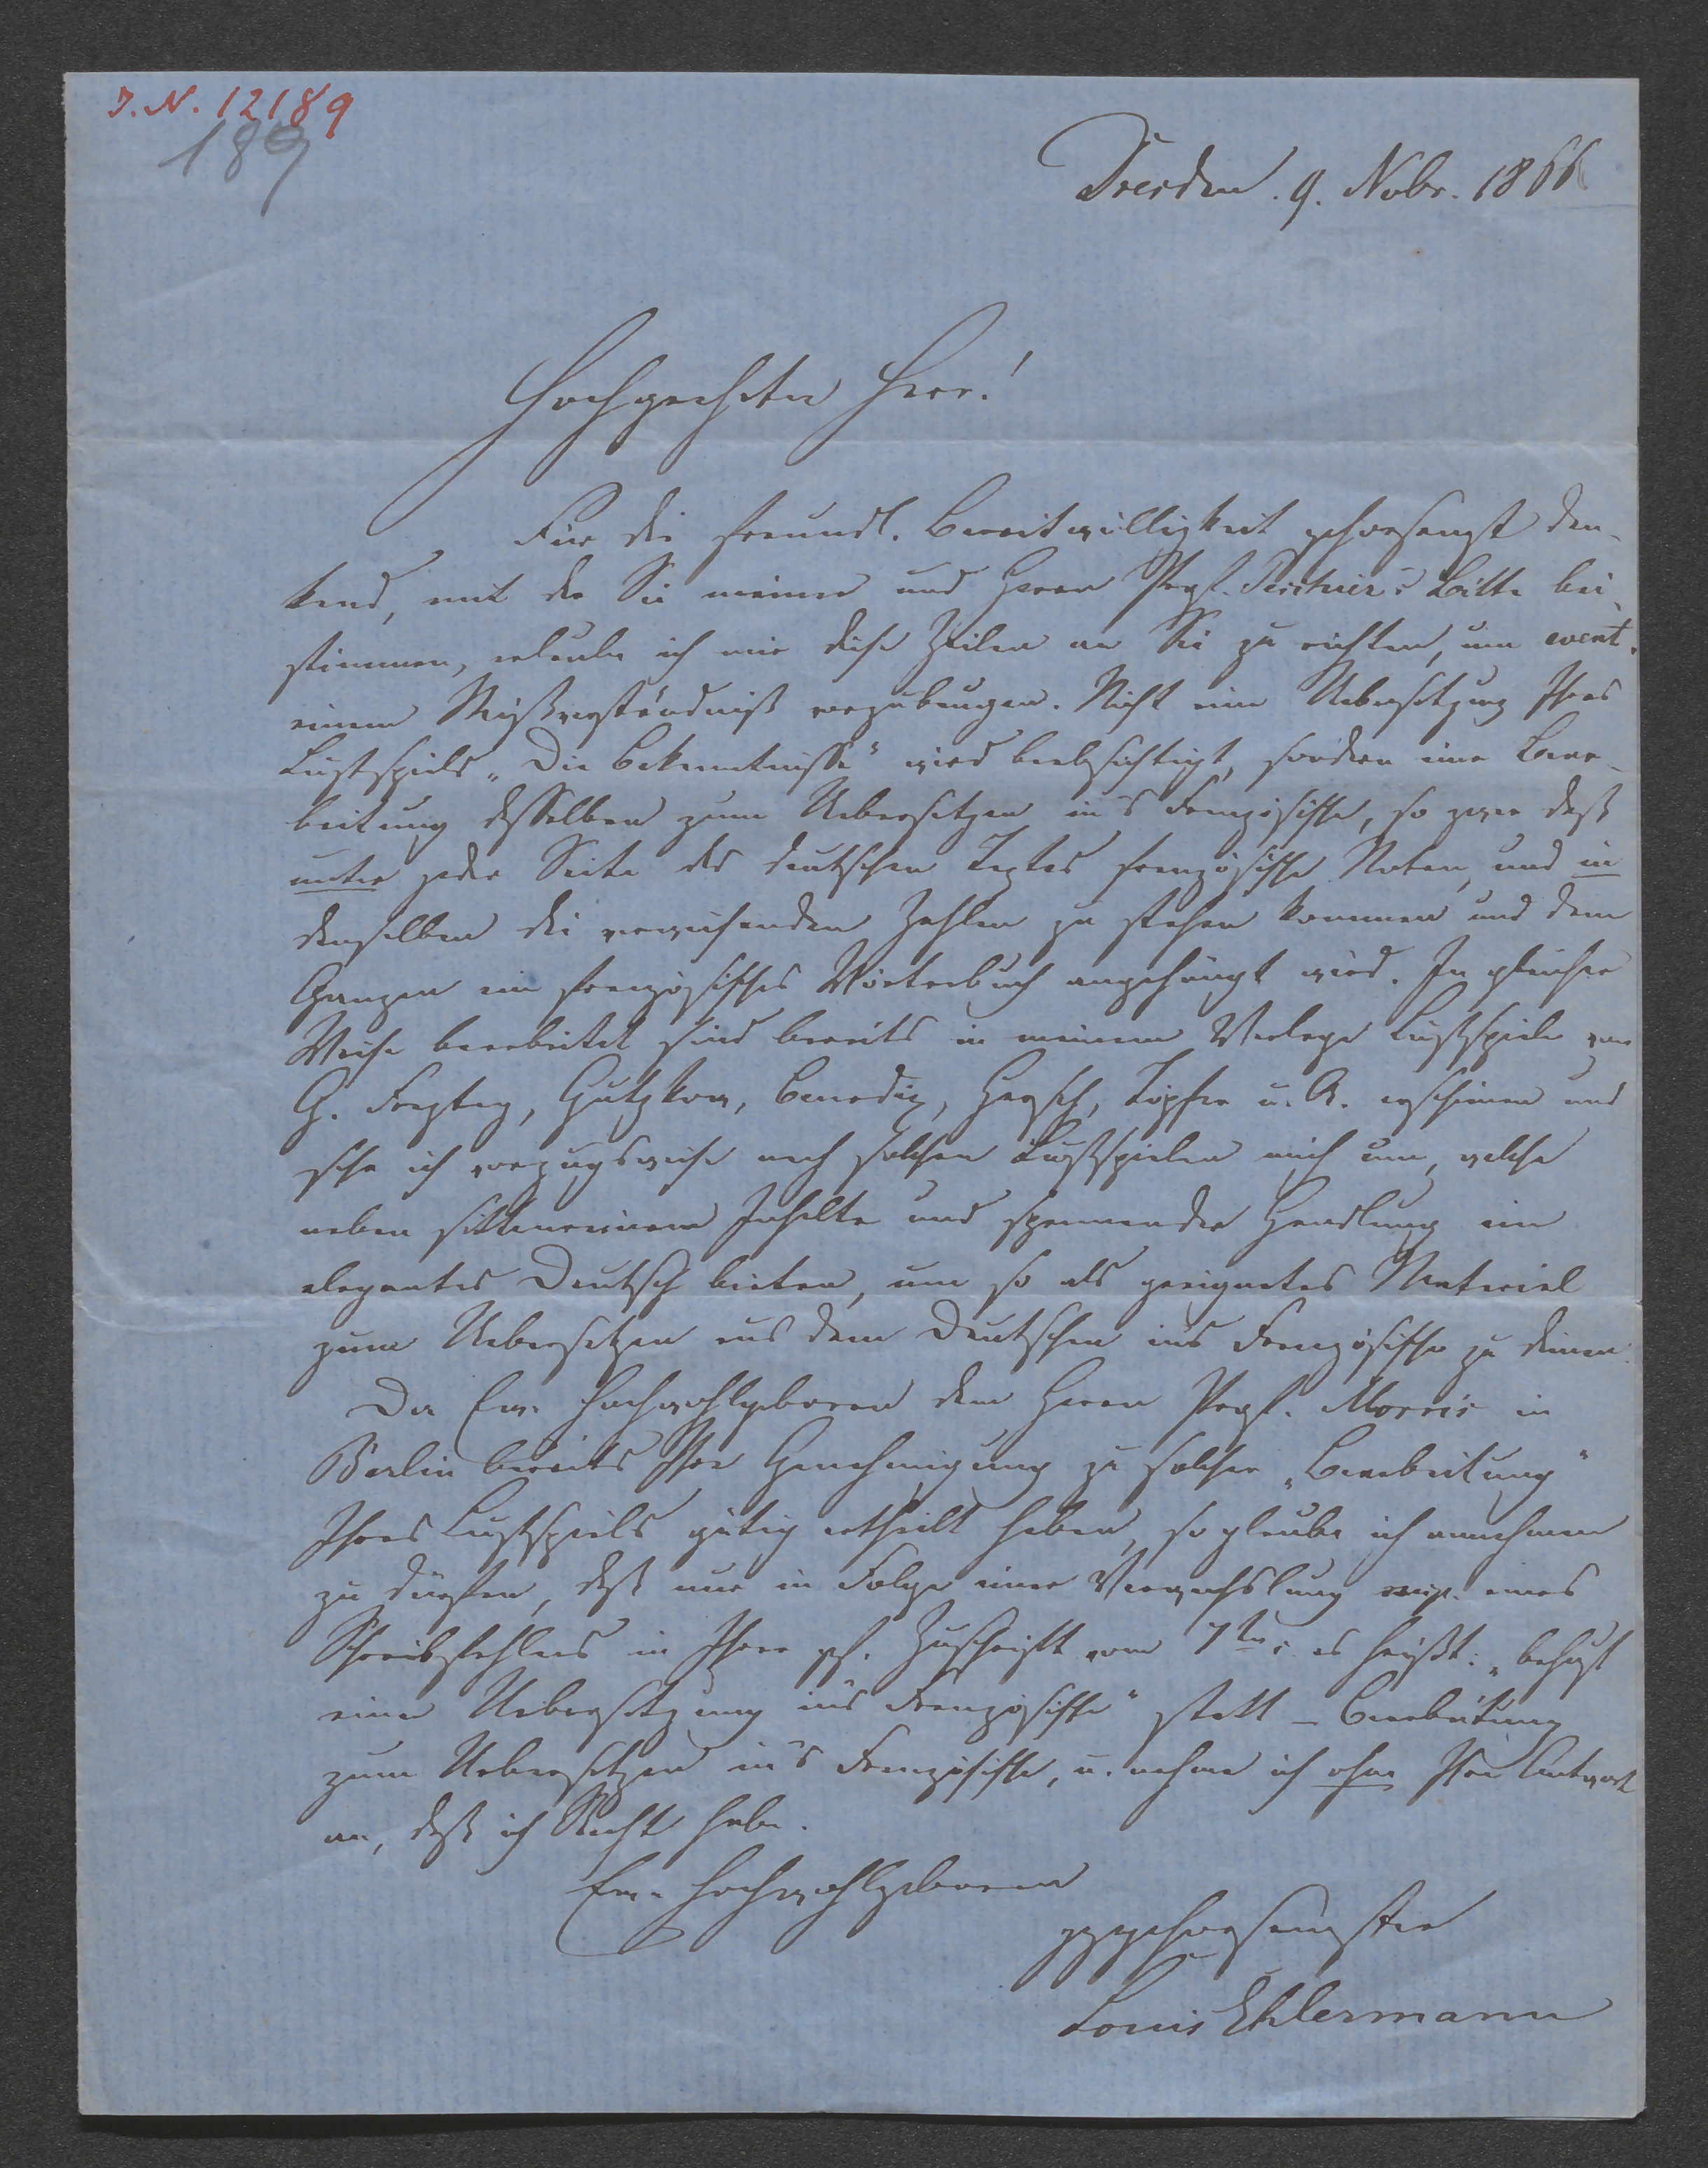 I. N. 12189
189
Dresden. 9. Nobr. 1866
Hochgeehrter Herr!
Für die freundl. Bereitwilligkeit gehorsamst dan-
kend, mit der Sie meiner und Herrn Prof. Peschier's Bitte bei-
stimmen, erlaube ich mir diese Zeilen an Sie zu richten, um event.
einem Mißverständniß vorzubeugen. Nicht eine Uebersetzung Ihres
Lustspiels „Die Bekenntnisse" wird beabsichtigt, sondern eine Bear-
beitung desselben zum Uebersetzen in's Französische, so zwar daß
unter jeder Seite des deutschen Textes französische Noten, und in
denselben die verweisenden Zahlen zu stehen kommen und dem
Ganzen ein französisches Wörterbuch angehängt wird. In gleicher
Weise bearbeitet sind bereits in meinem Verlage Lustspiele von
G. Freytag, Gutzkow, Benedix, Hersch, Töpfer u. A. erschienen und
sehe ich vorzugsweise nach solchen Lustspielen mich um, welche
neben sittenreinem Inhalte und spannender Handlung ein
elegantes Deutsch bieten, um so als geeignetes Material
zum Uebersetzen aus dem Deutschen ins Französische zu dienen.
Da Ew. Hochwohlgeboren dem Herrn Prof. Morris in
Berlin bereits Ihre Genehmigung zu solcher „Bearbeitung"
Ihres Lustspiels gütig ertheilt haben, so glaube ich annehmen
zu dürfen, daß nur in Folge einer Verwechslung resp. eines
Schreibfehlers in Ihrer gf. Zuschrift vom 7ten es heißt: „behufs
einer Uebersetzung ins Französische" statt – Bearbeitung
zum Uebersetzen in's Französische, u. nehme ich ohne Ihre Antwort
an, daß ich Recht habe.
Ew. Hochwohlgeboren
gehorsamster
Louis Ehlermann